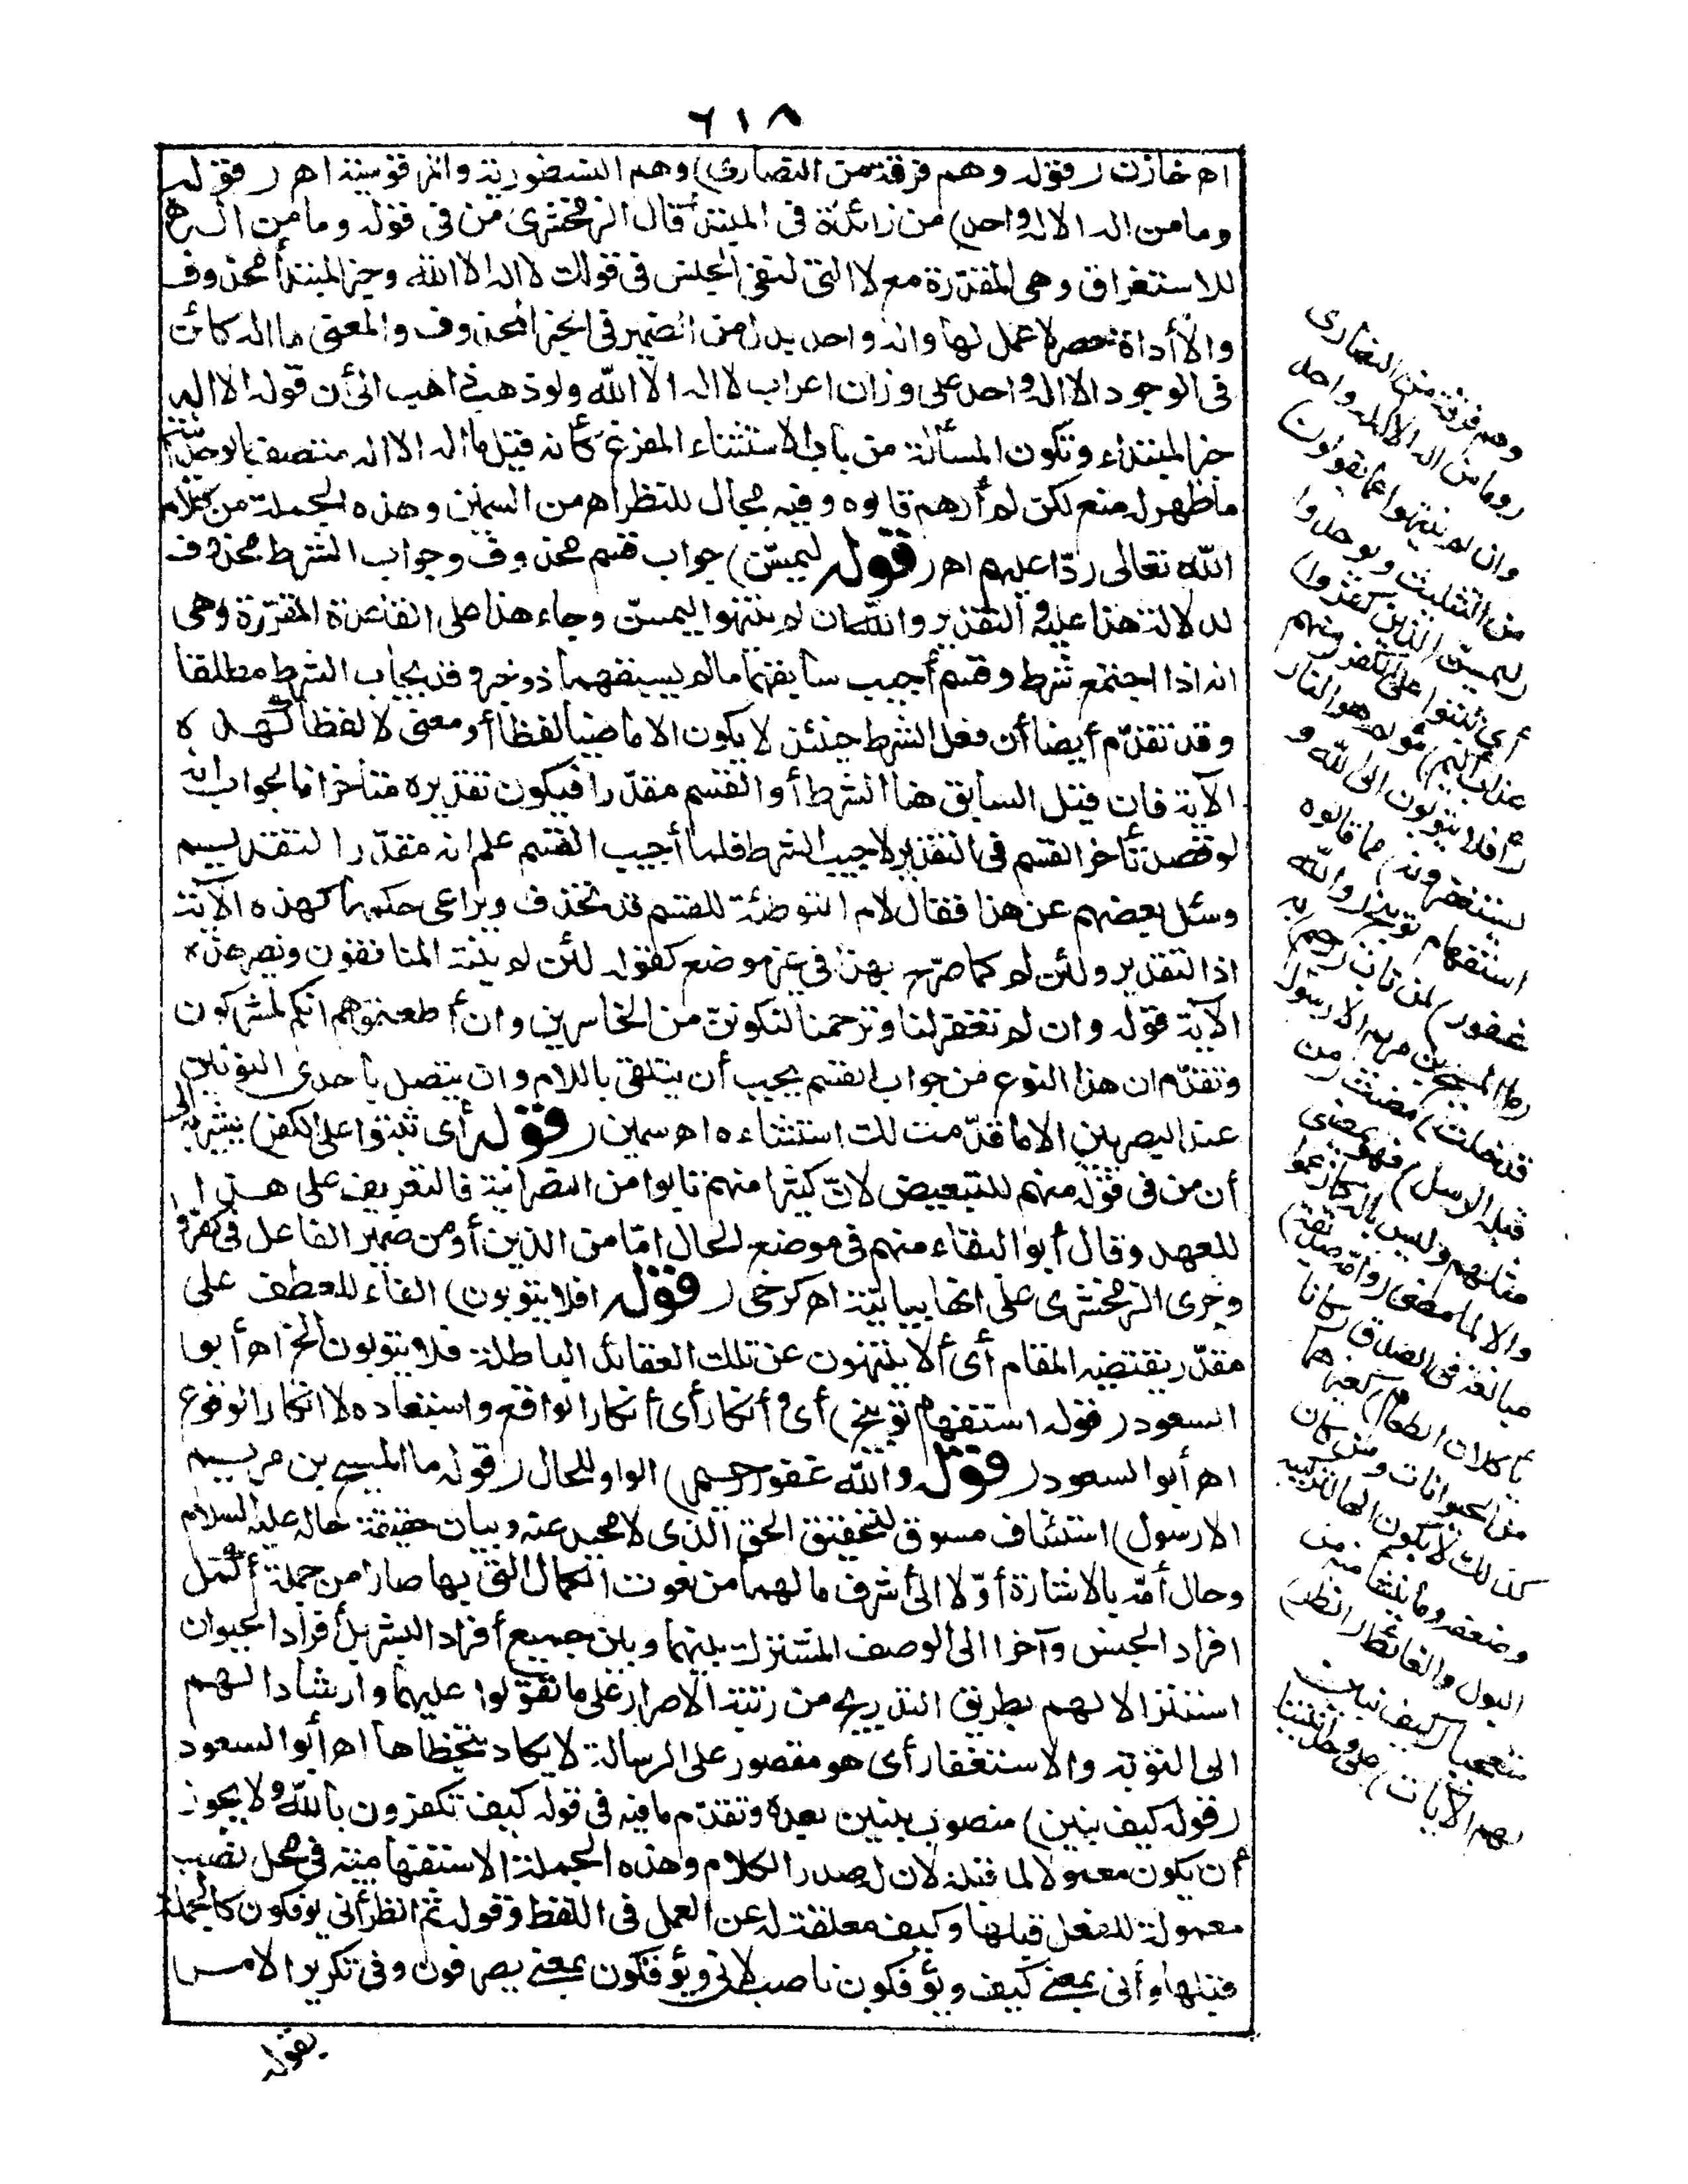 ٦١٨
اه خازن (قوله وهم فرقة من النصارى) وهم النسطورية والمرقوسية اه (قوله
وما من اله الا اله واحد) من زائدة في المبتدأ قال الزمخشرى من في قوله وما من اله
للاستغراق وهى المقدرة مع لا التى لنفى الجنس في قولك لا اله الا الله وخبر المبتدأ محذوف
والا أداة حصر لا عمل لها واله واحد بدل من الضمير في الخبر المحذوف والمعنى ما اله كائن
في الوجود الا اله واحد على وزان اعراب لا اله الا الله ولو ذهب ذاهب الى أن قوله الا اله
خبر المبتداء وتكون المسألة من باب الاستثناء المفرغ كأنه قيل ما اله الا اله متصف بالوحدانية
ما ظهر له منع لكن لم أرهم قالوه وفيه مجال للنظر اه من السمين وهذه الجملة من كلام
الله تعالى ردّا عليهم اه (قوله ليمسّن) جواب قسم محذوف وجواب الشرط محذوف
لدلالة هذا عليه والتقدير والله ان لم ينتهوا ليمسنّ وجاء هذا على القاعدة المقرّرة وهى
انه اذا اجتمع شرط وقسم أجيب سابقهما ما لم يسبقهما ذو خبر وقد يجاب الشرط مطلقا
وقد تقدّم أيضا أن فعل الشرط حينئذ لا يكون الا ماضيا لفظا أو معنى لا لفظا كهذه
الآية فان قيل السابق هنا الشرط أو القسم مقدّر افيكون تقديره متأخرا فالجواب انه
لو قصد تأخر القسم في التقدير لاجيب الشرط فلما أجيب القسم علم انه مقدّر التقديم
وسئل بعضهم عن هذا فقال لام التوطئة للقسم قد تحذف ويراعى حكمها كهذه الآية
اذ التقدير ولئن لم كما صرّح بهذا في غير موضع كقوله لئن لم ينته المنافقون ونصر هذه
الآية قوله وان لم تغفر لنا وترحمنا لنكوننّ من الخاسرين وان أطعتموهم انكم لمشركون
وتقدّم ان هذا النوع من جواب القسم يجب أن يتلقى باللام وان يتصل باحدى النونين
عند البصريين الا ما قدّمت لك استثناءه اه سمين (قوله أى ثبتوا على الكفر) يشير به الى
أن من في قوله منهم للتبعيض لانّ كثيرا منهم تابوا من النصرانية فالتعريف على هذا
للعهد وقال أبو البقاء منهم في موضع الحال امّا من الذين أو من ضمير الفاعل في كفروا
وجرى الزمخشرى على انها بيانية اه كرخى (قوله افلا يتوبون) الفاء للعطف على
مقدّر يقتضيه المقام أى ألا ينتهون عن تلك العقائد الباطلة فلا يتوبون الخ اه أبو
السعود (قوله استفهام توبيخ) أى وأنكار أى أنكار الواقع واستبعاده لا انكار الوقوع
اه أبو السعود (قوله والله غفور رحيم) الواو للحال (قوله ما المسيح بن مريم
الا رسول) استئناف مسوق لتحقيق الحق الذى لا محيد عنه وبيان حقيقة حاله عليه السلام
وحال أمّه بالاشارة أوّلا الى أشرف ما لهما من نعوت الكمال التى بها صارا من جملة أكمل
افراد الجنس وآخرا الى الوصف المشترك بينهما وبين جميع أفراد البشر بل أفراد الحيوان
استنزالا لهم بطريق التدريج من رتبة الاصرار على ما تقوّلوا عليهما وارشادا لهم
الى التوبة والاستغفار أى هو مقصور على الرسالة لا يكاد يتخطاها اه أبو السعود
(قوله كيف نبين) منصوب بنبين بعده وتقدّم ما فيه في قوله كيف تكفرون بالله ولا يجوز
أن يكون معمولا لما قبله لان له صدر الكلام وهذه الجملة الاستفهامية في محل نصب
معمولة للفعل قبلها وكيف معلقة له عن العمل في اللفظ وقوله ثم انظر أنى يؤفكون كالجملة
قبلها وأنى بمعنى كيف ويؤفكون ناصب لانى ويؤفكون بمعنى يصرفون وفى تكرير الامر
بقوله
وهم فرقة من النصارى
(وما من اله الا اله واحد
وان لم ينتهوا عما يقولون)
من التثليث ويوحدوا
(ليمسنّ الذين كفروا)
أى ثبتوا على الكفر (منهم
عذاب أليم) مؤلم هو النار
(أفلا يتوبون الى الله و
يستغفرونه) مما قالوه
استفهام توبيخ (والله
غفور) لمن تاب (رحيم) به
(ما المسيح بن مريم الا رسول
قد خلت) مضت (من
قبله الرسل) فهو يمضى
مثلهم وليس باله كما زعموا
والا لما مضى (وأمّه صدّيقة)
مبالغة في الصدق (كانا
يأكلان الطعام) كغيرهما
من الحيوانات ومن كان
كذلك لا يكون الها لتركيبه
وضعفه وما ينشأ منه من
البول والغائط (انظر)
متعجبا (كيف نبين
لهم الآيات) على وحدانيتنا